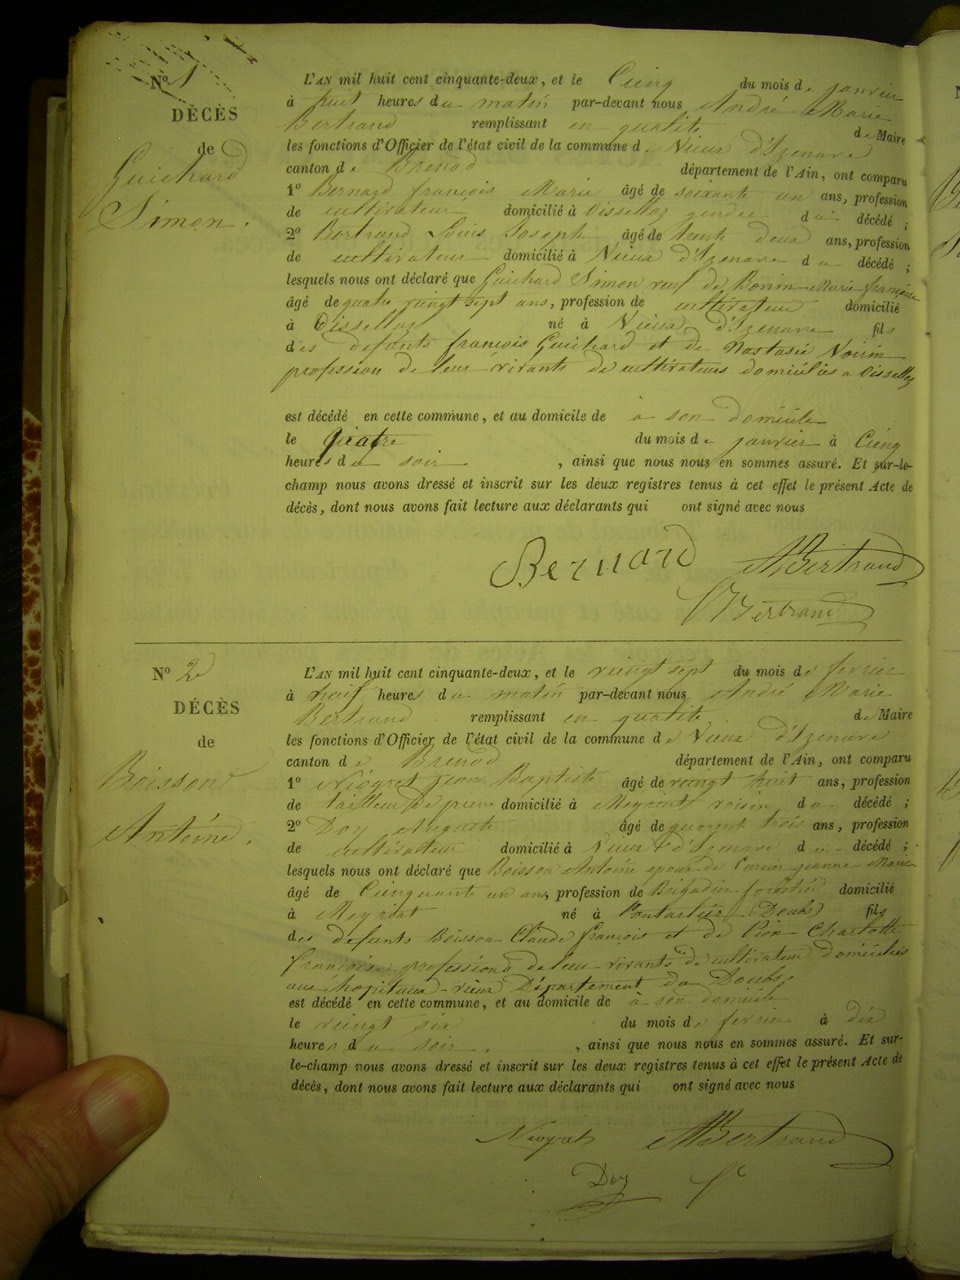 Nº 1
DÉCÈS
de
Guichard
Simon.
L'AN mil huit cent cinquante-deux, et le Cinq du mois de janvier
à huit heures du matin par-devant nous André Marie
Bertrand remplissant en qualité de Maire
les fonctions d'Officier de l'état civil de la commune de Vieux d'Izenave
canton de Brenod département de l'Ain, ont comparu
1º Bernard françois Marie âgé de soixante un ans, profession
de cultivateur domicilié à Oisselaz gendre du décédé ;
2º Bertrand Louis Joseph âgé de trente deux ans, profession
de cultivateur domicilié à Vieux d'Izenave du décédé ;
lesquels nous ont déclaré que Guichard Simon veuf de Bonin Marie françoise
âgé de quatre vingt sept ans, profession de cultivateur domicilié
à Oisselaz né à Vieux d'Izenave fils
des defunts françois Guichard et de Nostasie
profession de leur vivants de cultivateurs domiciliés a Oisselaz
est décédé en cette commune, et au domicile de a son domicile
le quatre du mois de janvier à Cinq
heures du soir , ainsi que nous nous en sommes assuré. Et sur-le-
champ nous avons dressé et inscrit sur les deux registres tenus à cet effet le présent Acte de
décès, dont nous avons fait lecture aux déclarants qui ont signé avec nous
Bernard AMBertrand
Bertrand
Nº 2
DÉCÈS
de
Boisson
Antoine.
L'AN mil huit cent cinquante-deux, et le vingt sept du mois de fevrier
à neuf heures du matin par-devant nous André Marie
Bertrand remplissant en qualité de Maire
les fonctions d'Officier de l'état civil de la commune de Vieux d'Izenave
canton de Brenod département de l'Ain, ont comparu
1º Niogret Jean Baptiste âgé de vingt huit ans, profession
de tailleur de pierre domicilié à voisin du décédé ;
2º Doy Auguste âgé de quarant trois ans, profession
de cultivateur domicilié à Vieux d'Izenave du décédé ;
lesquels nous ont déclaré que Boisson Antoine epoux de jeanne Marie
âgé de Cinquante un ans, profession de Brigadier forestier domicilié
à né à Pontarlier (Doubs) fils
des defunts Boisson Claude françois et de Pion Charlotte
françoise profession de leur vivants de cultivateur domiciliés
aux hopitaux-vieux Département du Doubs
est décédé en cette commune, et au domicile de a son domicile
le vingt six du mois de fevrier à dix
heures du soir , ainsi que nous nous en sommes assuré. Et sur-
le-champ nous avons dressé et inscrit sur les deux registres tenus à cet effet le présent Acte de
décès, dont nous avons fait lecture aux déclarants qui ont signé avec nous
Niogret AMBertrand
Doy